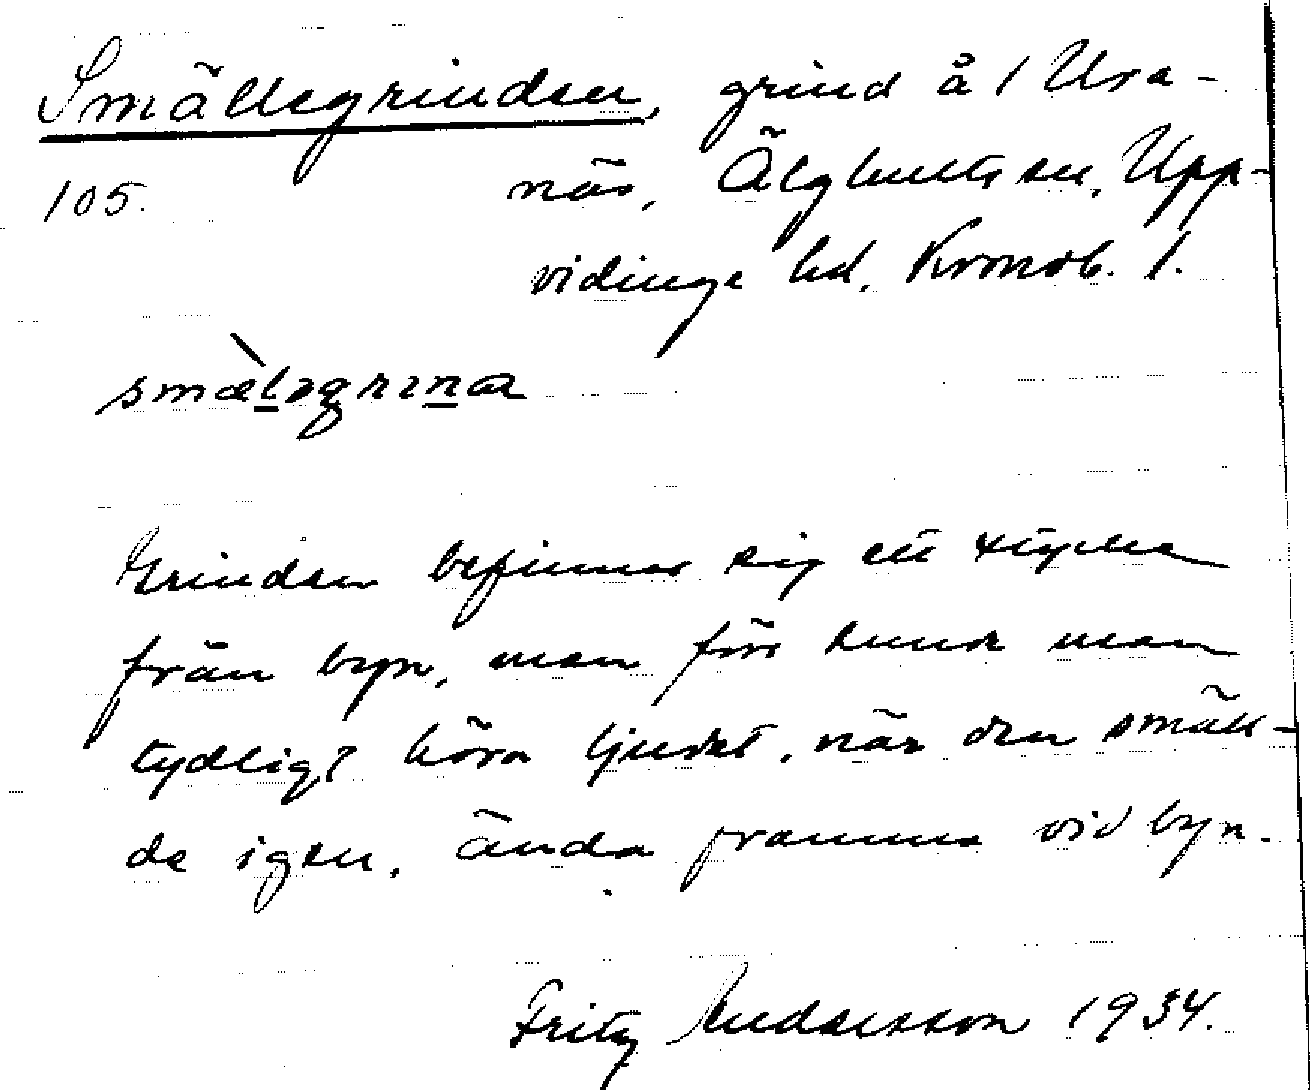 Smällegrinden, grind å 1 Ura-
105. näs, Älghults sn, Upp-
vidinge hd, Kronob. l.
smæləgrina
Grinden befinner sig ett stycke
från byn, men förr kunde man
tydligt höra ljudet, när den smäll-
de igen, ända framme vid byn.
Fritz Andersson 1934.